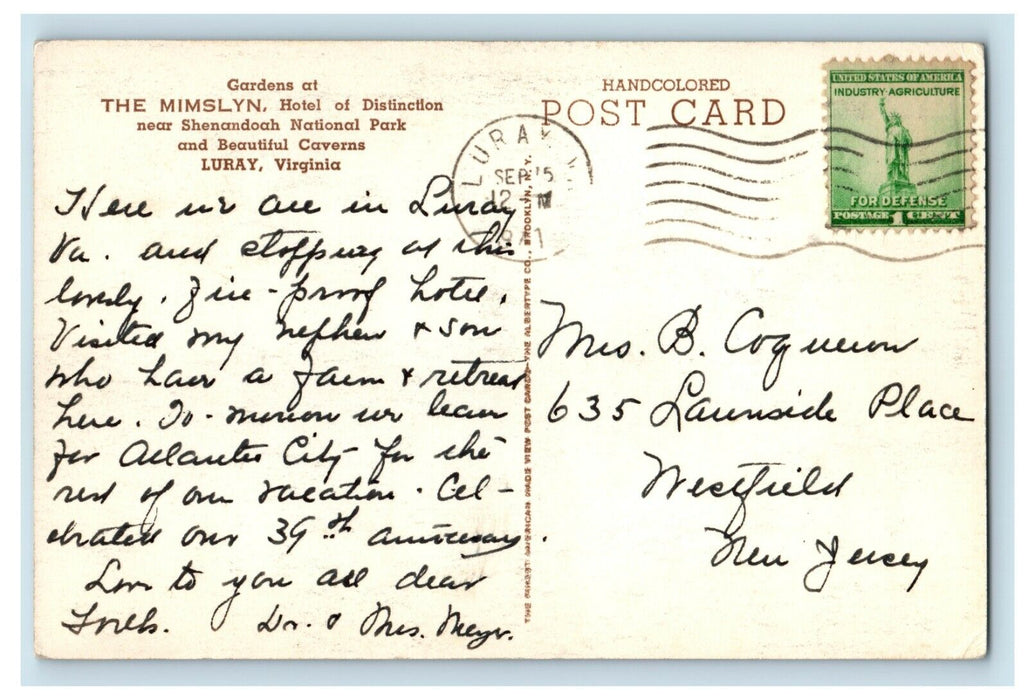 Gardens at
THE MIMSLYN, Hotel of Distinction
near Shenandoah National Park
and Beautiful Caverns
LURAY, Virginia
HANDCOLORED
POST CARD
UNITED STATES OF AMERICA
INDUSTRY-AGRICULTURE
FOR DEFENSE
POSTAGE 1 CENT
LURAY
SEP 15
12 M
Here we are in Luray
Va. and stopping at this
lovely, fire-proof hotel.
Visited my nephew & son
who have a farm & retreat
here. To-morrow we leave
for Atlantic City for the
rest of our vacation. Cel-
ebrated our 39th anniversary.
Love to you all dear
folks. Dr. & Mrs. Meyer.
Mrs. B.
635 Lawnside Place
Westfield
New Jersey
THE ALBERTYPE CO., BROOKLYN, N.Y.